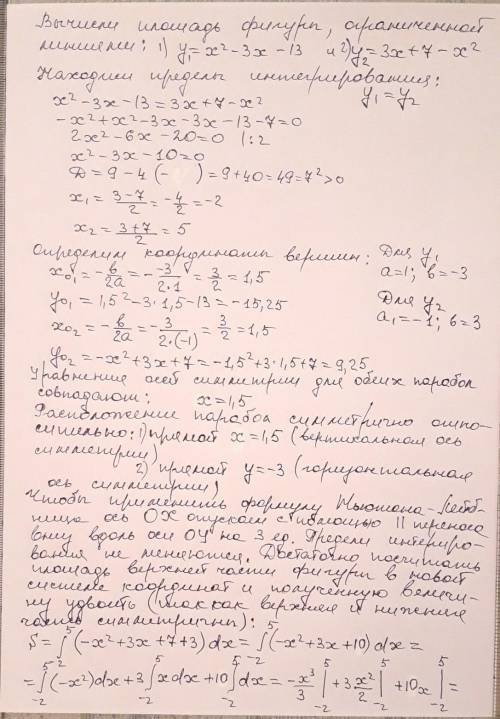 Вычисли площадь фигуры, ограниченной
линиями: 1) y₁=x²-3x-13 и 2) y₂=3x+7-x²
Находим пределы интегрирования:
y₁=y₂
x²-3x-13=3x+7-x²
-x²+x²-3x-3x-13-7=0
2x²-6x-20=0 |:2
x²-3x-10=0
D=9-4(- )=9+40=49=7²>0
x₁=(3-7)/2=-4/2=-2
x₂=(3+7)/2=5
Определим координаты вершин:
Для y₁
a=1; b=-3
x₀₁=-b/2a=-(-3)/(2·1)=3/2=1,5
y₀₁=1,5²-3·1,5-13=-15,25
Для y₂
a₁=-1; b=3
x₀₂=-b/2a=-3/(2·(-1))=3/2=1,5
y₀₂=-x²+3x+7=-1,5²+3·1,5+7=9,25
Уравнение осей симметрии для обеих парабол
совпадают: x=1,5
Расположение парабол симметрично отно-
сительно: 1) прямой x=1,5 (вертикальная ось
симметрии)
2) прямой y=-3 (горизонтальная
ось симметрии)
Чтобы применить формулу Ньютона-Лейб-
ница ось OX опускаем с помощью || переноса
вниз вдоль оси OY на 3 ед. Пределы интегриро-
вания не меняются. Достаточно посчитать
площадь верхней части фигуры в новой
системе координат и полученную величи-
ну удвоить (так как верхняя и нижняя
части симметричны):
S=∫₋₂⁵(-x²+3x+7+3)dx=∫₋₂⁵(-x²+3x+10)dx=
=∫₋₂⁵(-x²)dx+3∫₋₂⁵xdx+10∫₋₂⁵dx=-x³/3|₋₂⁵+3x²/2|₋₂⁵+10x|₋₂⁵=